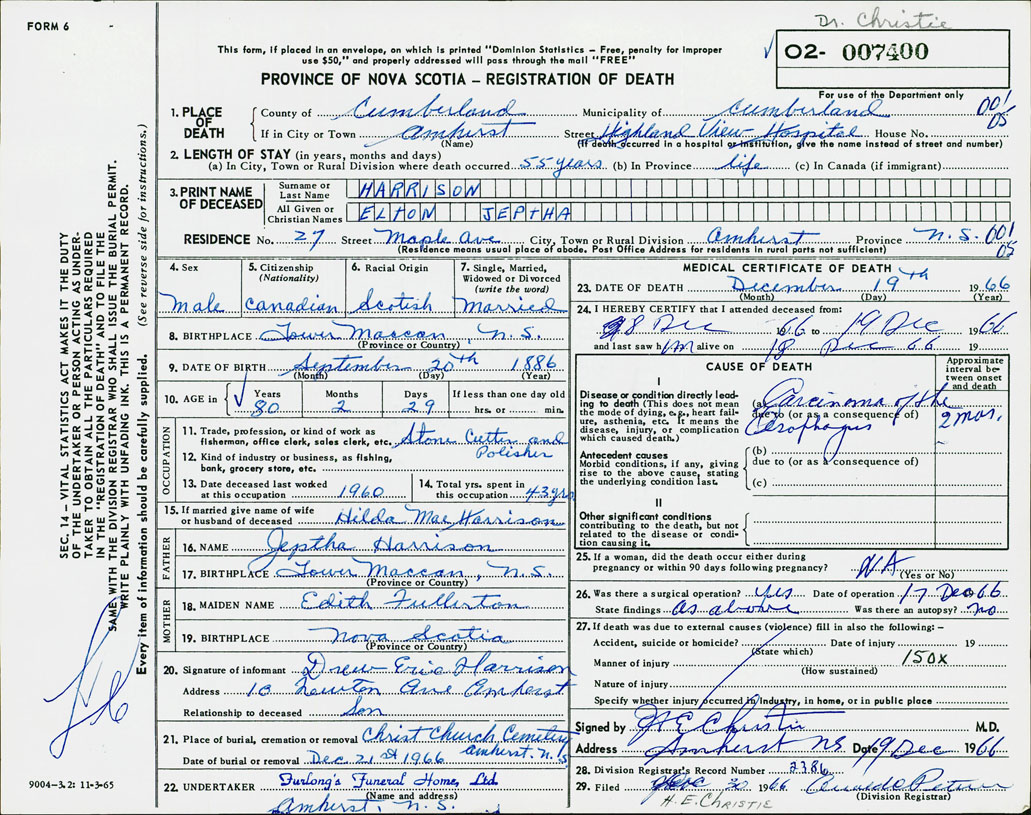 FORM 6
Dr. Christie
This form, if placed in an envelope, on which is printed "Dominion Statistics – Free, penalty for improper
use $50," and properly addressed will pass through the mail "FREE"
O2- 007400
PROVINCE OF NOVA SCOTIA – REGISTRATION OF DEATH
For use of the Department only
1. PLACE OF DEATH County of Cumberland Municipality of Cumberland 001
If in City or Town Amherst Street Highland View Hospital House No. 05
(Name) (If death occurred in a hospital or institution, give the name instead of street and number)
2. LENGTH OF STAY (in years, months and days)
(a) In City, Town or Rural Division where death occurred 55 years (b) In Province life (c) In Canada (if immigrant)
3. PRINT NAME OF DECEASED Surname or Last Name HARRISON
All Given or Christian Names ELTON JEPTHA
RESIDENCE No. 27 Street Maple Ave City, Town or Rural Division Amherst Province N.S. 001
(Residence means usual place of abode. Post Office Address for residents in rural parts not sufficient) 05
4. Sex Male
5. Citizenship (Nationality) Canadian
6. Racial Origin Scotish
7. Single, Married, Widowed or Divorced (write the word) Married
8. BIRTHPLACE Lower Maccan, N.S.
(Province or Country)
9. DATE OF BIRTH September 20th 1886
(Month) (Day) (Year)
10. AGE in Years 80 Months 2 Days 29 If less than one day old hrs. or min.
OCCUPATION
11. Trade, profession, or kind of work as fisherman, office clerk, sales clerk, etc. Stone Cutter and Polisher
12. Kind of industry or business, as fishing, bank, grocery store, etc.
13. Date deceased last worked at this occupation 1960
14. Total yrs. spent in this occupation 43 yrs
15. If married give name of wife or husband of deceased Hilda Mae Harrison
FATHER
16. NAME Jeptha Harrison
17. BIRTHPLACE Lower Maccan, N.S.
(Province or Country)
MOTHER
18. MAIDEN NAME Edith Fullerton
19. BIRTHPLACE Nova Scotia
(Province or Country)
20. Signature of informant Drew Eric Harrison
Address 10 Newton Ave Amherst
Relationship to deceased Son
21. Place of burial, cremation or removal Christ Church Cemetery Amherst. N.S
Date of burial or removal Dec. 21st 1966
22. UNDERTAKER Furlong's Funeral Home, Ltd.
(Name and address)
Amherst, N.S.
MEDICAL CERTIFICATE OF DEATH
23. DATE OF DEATH December 19th 1966
(Month) (Day) (Year)
24. I HEREBY CERTIFY that I attended deceased from:
8 Dec 1966 to 19 Dec 1966
and last saw him alive on 18 Dec 66 19
CAUSE OF DEATH
Approximate interval between onset and death
I
Disease or condition directly leading to death (This does not mean the mode of dying, e.g., heart failure, asthenia, etc. It means the disease, injury, or complication which caused death.)
(a) Carcinoma of the
due to (or as a consequence of)
Oesophagus 2 mos.
Antecedent causes
Morbid conditions, if any, giving rise to the above cause, stating the underlying condition last.
(b)
due to (or as a consequence of)
(c)
II
Other significant conditions
contributing to the death, but not related to the disease or condition causing it.
25. If a woman, did the death occur either during pregnancy or within 90 days following pregnancy? N/A
(Yes or No)
26. Was there a surgical operation? Yes Date of operation 17 Dec 66
State findings as above Was there an autopsy? no
27. If death was due to external causes (violence) fill in also the following: –
Accident, suicide or homicide? Date of injury 19
(State which)
Manner of injury 150X
(How sustained)
Nature of injury
Specify whether injury occurred in Industry, in home, or in public place
Signed by H E Christie M.D.
Address Amherst NS Date 19 Dec 1966
28. Division Registrar's Record Number 2386
29. Filed Dec 20 1966
(Division Registrar)
H. E. CHRISTIE
SEC. 14 – VITAL STATISTICS ACT MAKES IT THE DUTY
OF THE UNDERTAKER OR PERSON ACTING AS UNDERTAKER
TO OBTAIN ALL THE PARTICULARS REQUIRED
IN THE "REGISTRATION OF DEATH" AND TO FILE THE
SAME WITH THE DIVISION REGISTRAR WHO SHALL ISSUE THE BURIAL PERMIT.
WRITE PLAINLY WITH UNFADING INK. THIS IS A PERMANENT RECORD.
Every item of information should be carefully supplied. (See reverse side for instructions.)
9004–3.2: 11-3-65